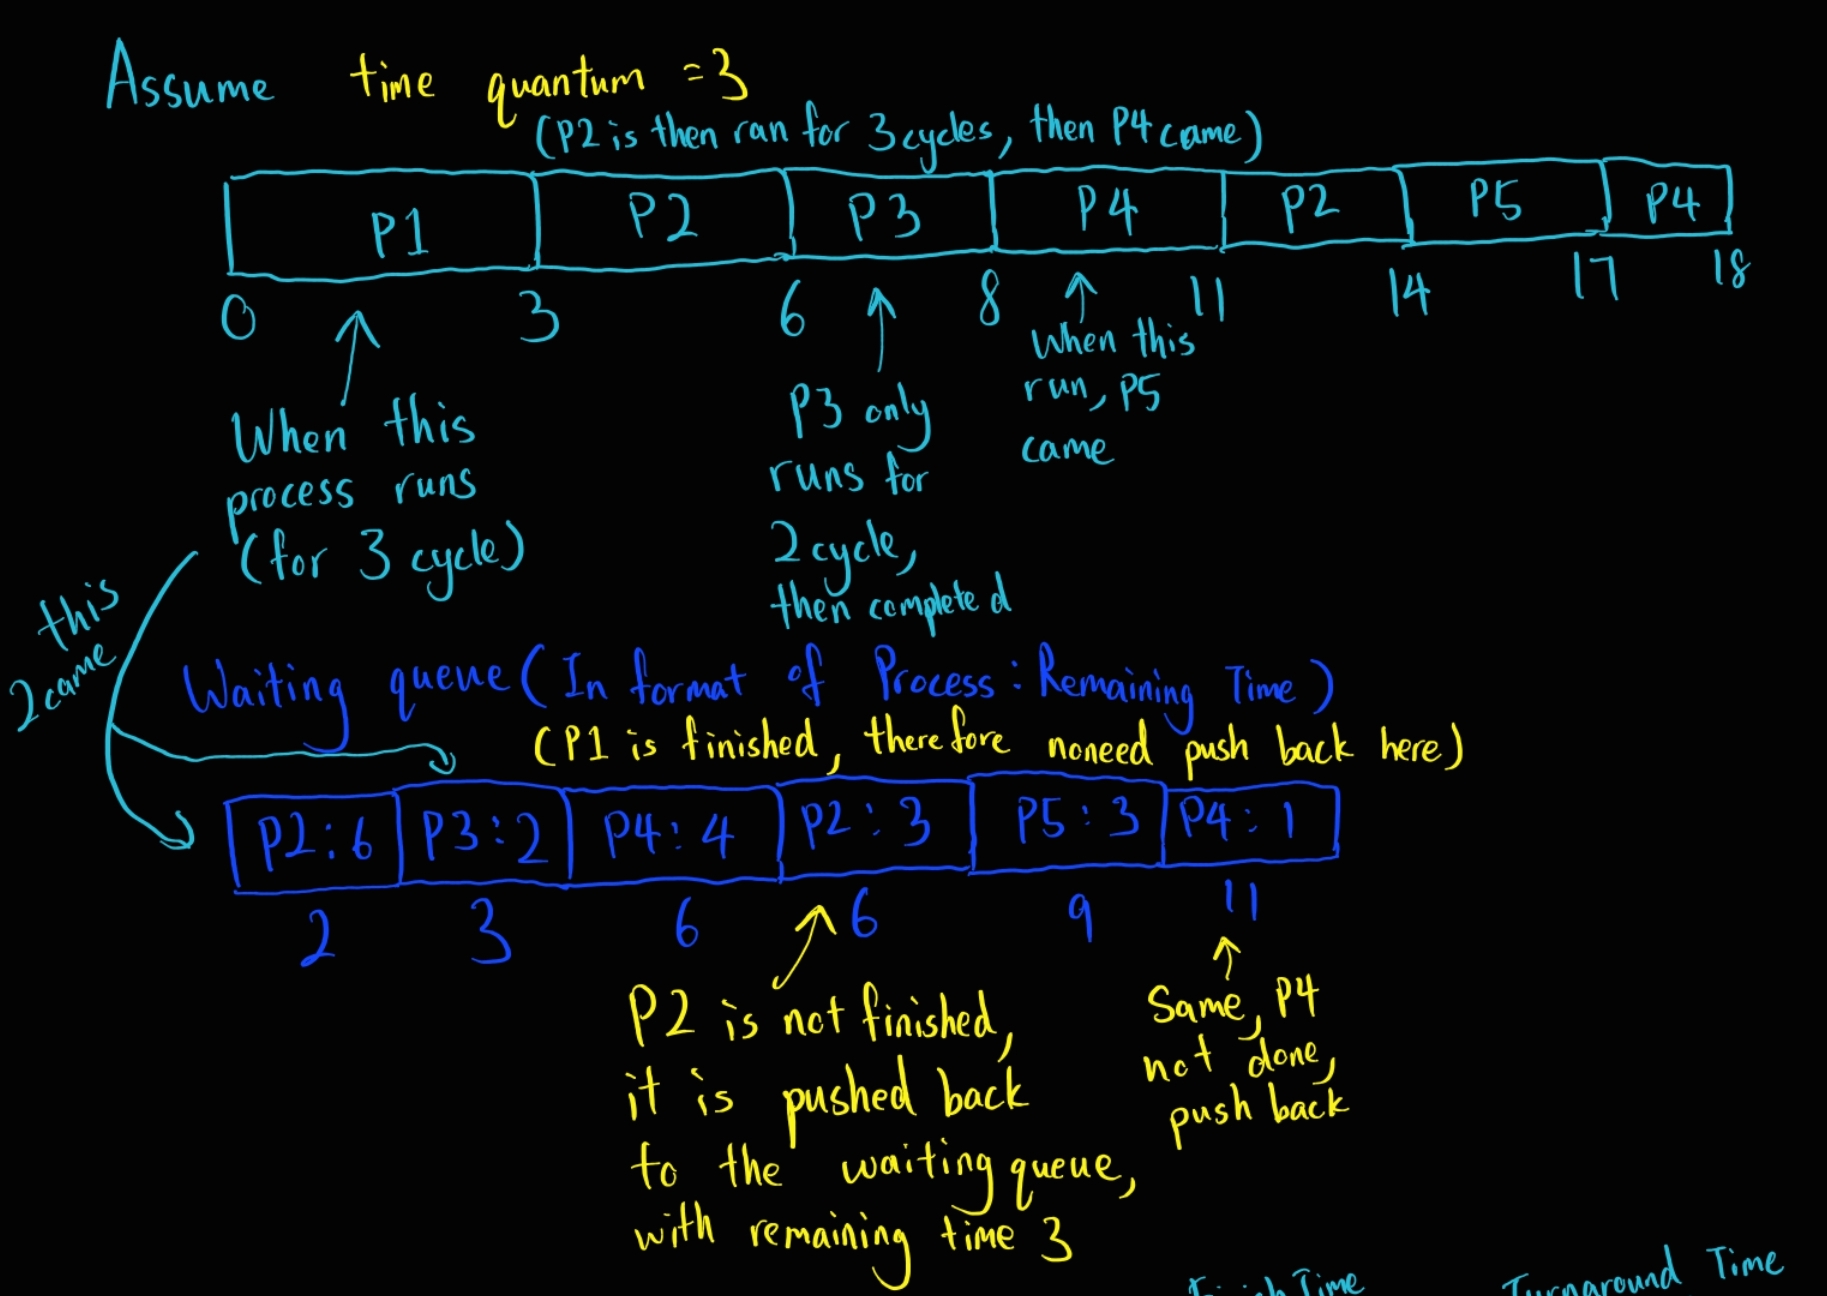 Assume time quantum = 3
(P2 is then ran for 3 cycles, then P4 came)
P1 P2 P3 P4 P2 P5 P4
0 3 6 8 11 14 17 18
When this
process runs
(for 3 cycle)
P3 only
runs for
2 cycle,
then completed
When this
run, P5
came
this
2 came
Waiting queue (In format of Process : Remaining Time)
(P1 is finished, therefore noneed push back here)
P2 : 6 P3 : 2 P4 : 4 P2 : 3 P5 : 3 P4 : 1
2 3 6 6 9 11
P2 is not finished,
it is pushed back
to the waiting queue,
with remaining time 3
Same, P4
not done,
push back
Finish Time Turnaround Time